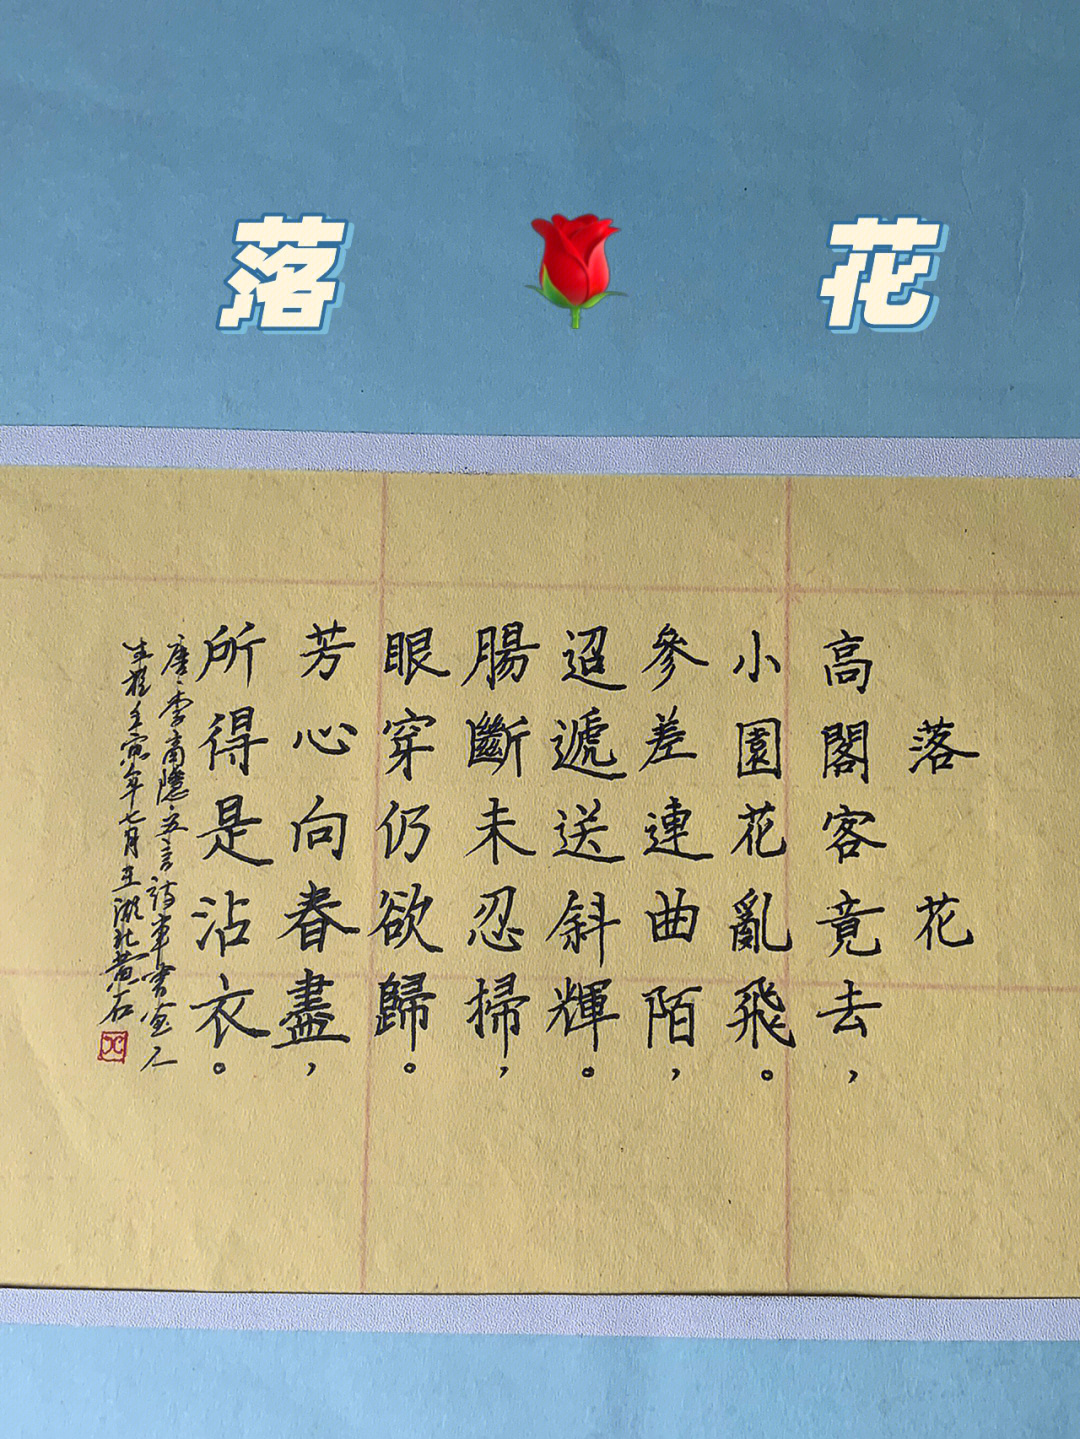 落🌹花
落花
高閣客竟去，
小園花亂飛。
參差連曲陌，
迢遞送斜輝。
腸斷未忍掃，
眼穿仍欲歸。
芳心向春盡，
所得是沾衣。
唐李商隱五言詩
壬寅年七月湖北黄石